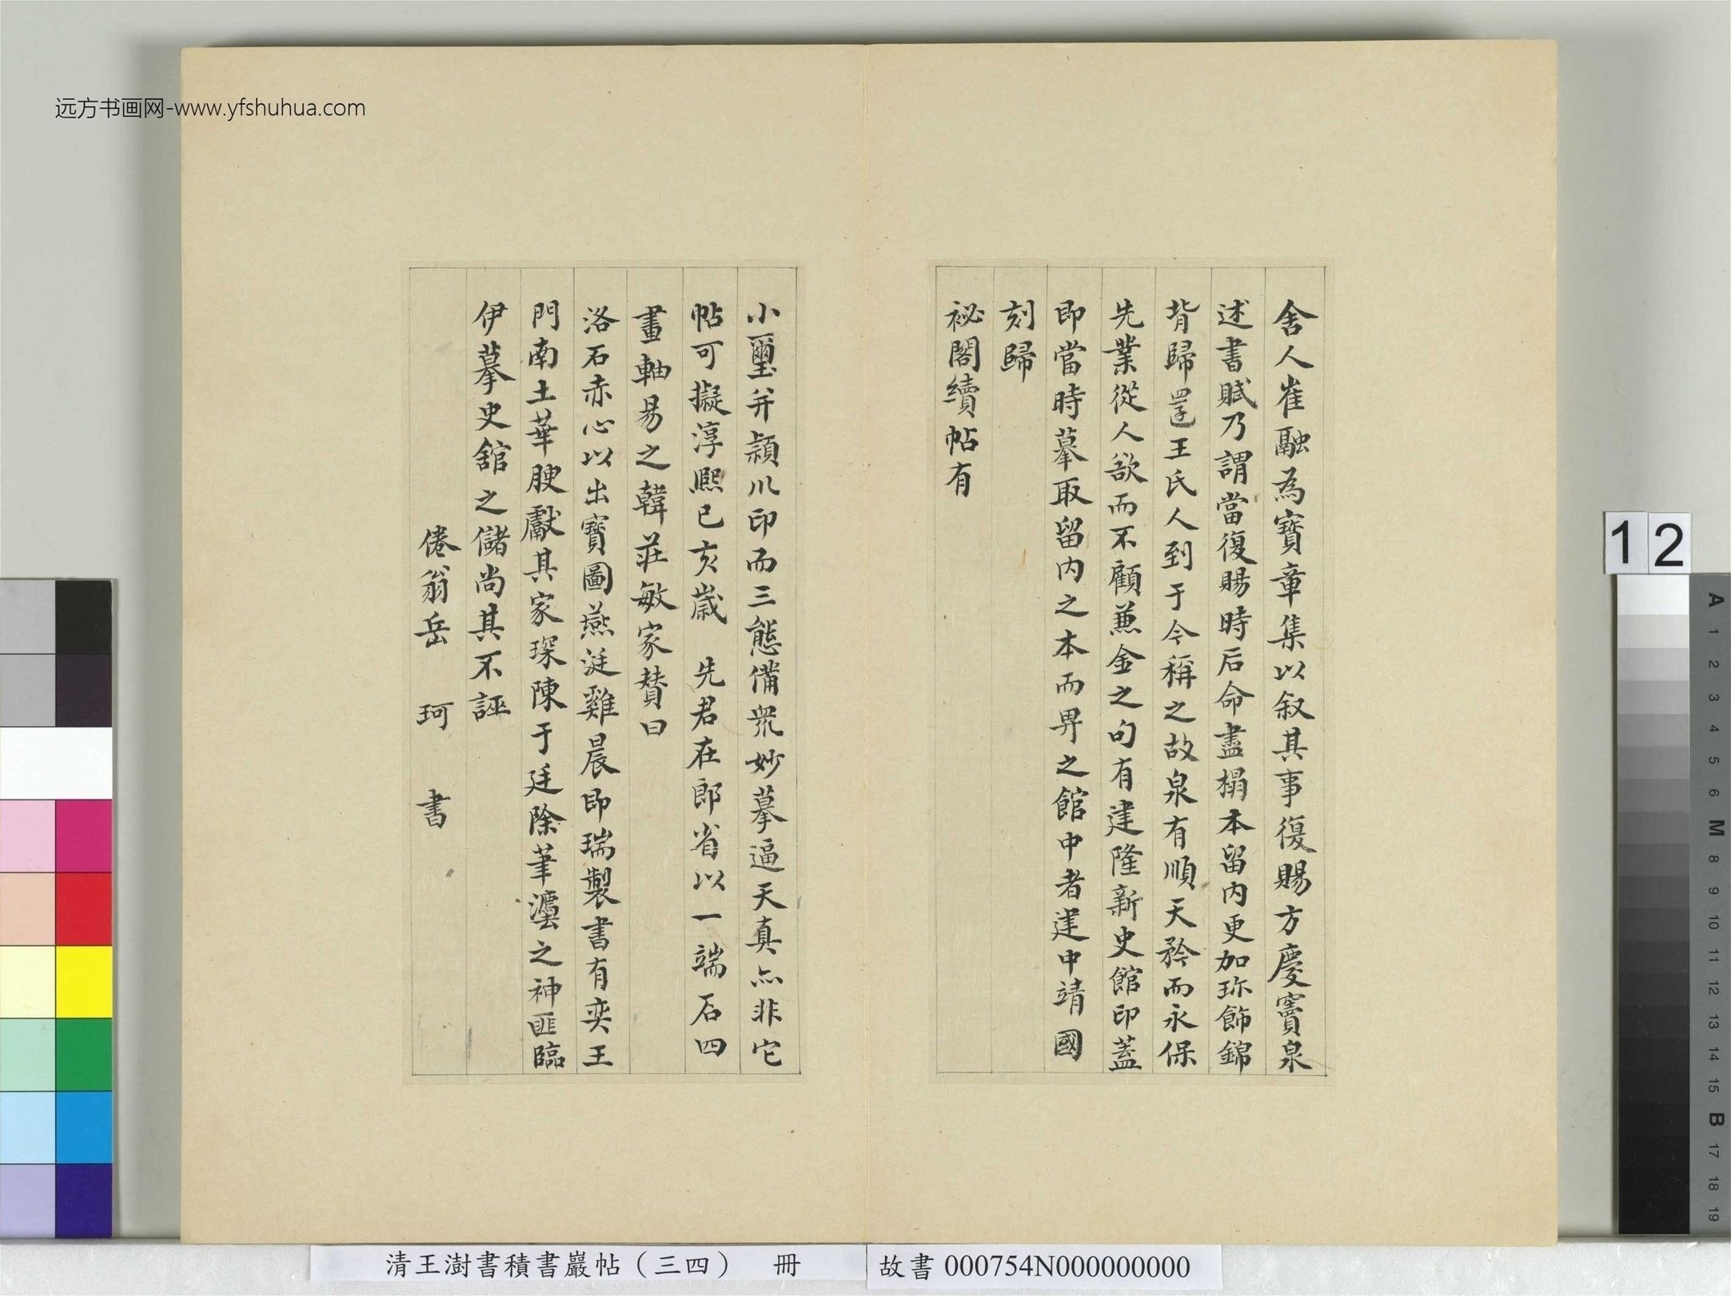 远方书画网-www.yfshuhua.com
舍人崔融為寶章集以叙其事復賜方慶竇泉
述書賦乃謂當復賜時后命盡搨本留内更加珎飾錦
背歸還王氏人到于今稱之故泉有順天矜而永保
先業從人欲而不顧兼金之句有建隆新史館印蓋
即當時摹取留内之本而畀之館中者建中靖國
刻歸
祕閣續帖有
小璽并潁川印而三態備衆妙摹逼天真亦非它
帖可擬淳熙已亥歲 先君在郎省以一端石四
畫軸易之韓莊敏家賛曰
洛石赤心以出寶圖燕涎雞晨即瑞製書有奕王
門南土華腴獻其家琛陳于廷除筆瀍之神匪臨
伊摹史舘之儲尚其不誣
倦翁岳 珂 書
清王澍書積書巖帖（三四） 冊
故書 000754N000000000
12
A 1 2 3 4 5 6 M 8 9 10 11 12 13 14 15 B 17 18 19